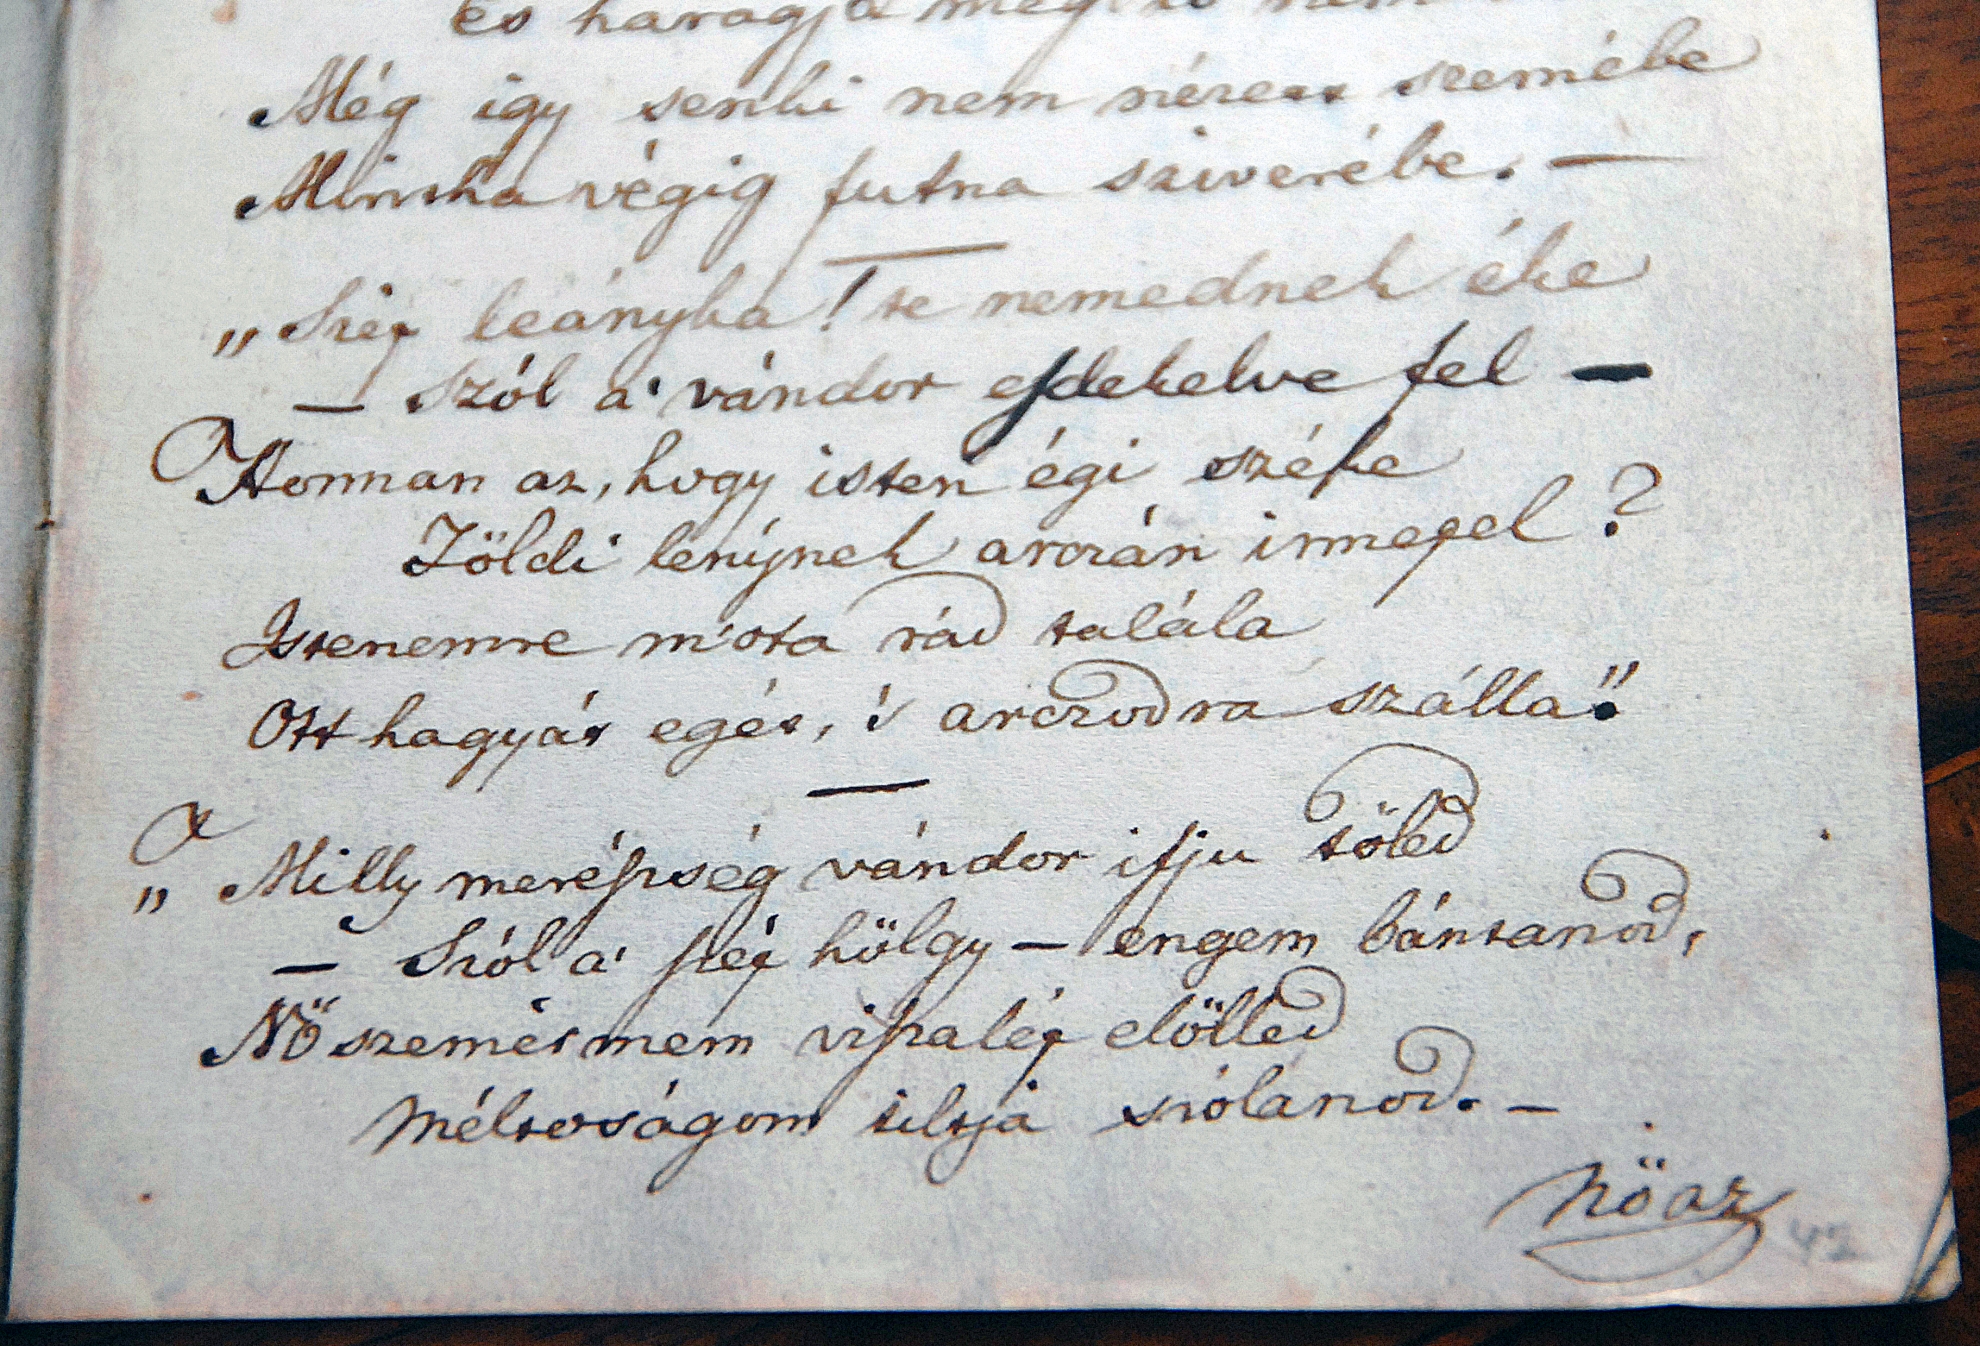 És haragja meg
Még igy senki nem nézett szemébe
Mintha végig futna szivverébe. —
„Szép leányka! te nemednek éke
— szól a' vándor esdekelve fel —
Honnan az, hogy isten égi széke
Földi lénynek arczán ünnepel?
Istenemre miota rád talála
Ott hagyás egét, 's arczodra szálla."
„Milly merészség vándor ifju töled
— Szól a' szép hölgy — engem bántanod,
Nő szemérmem viszalép elölled
Méltoságom tiltja szólanod. —
Nő az
42